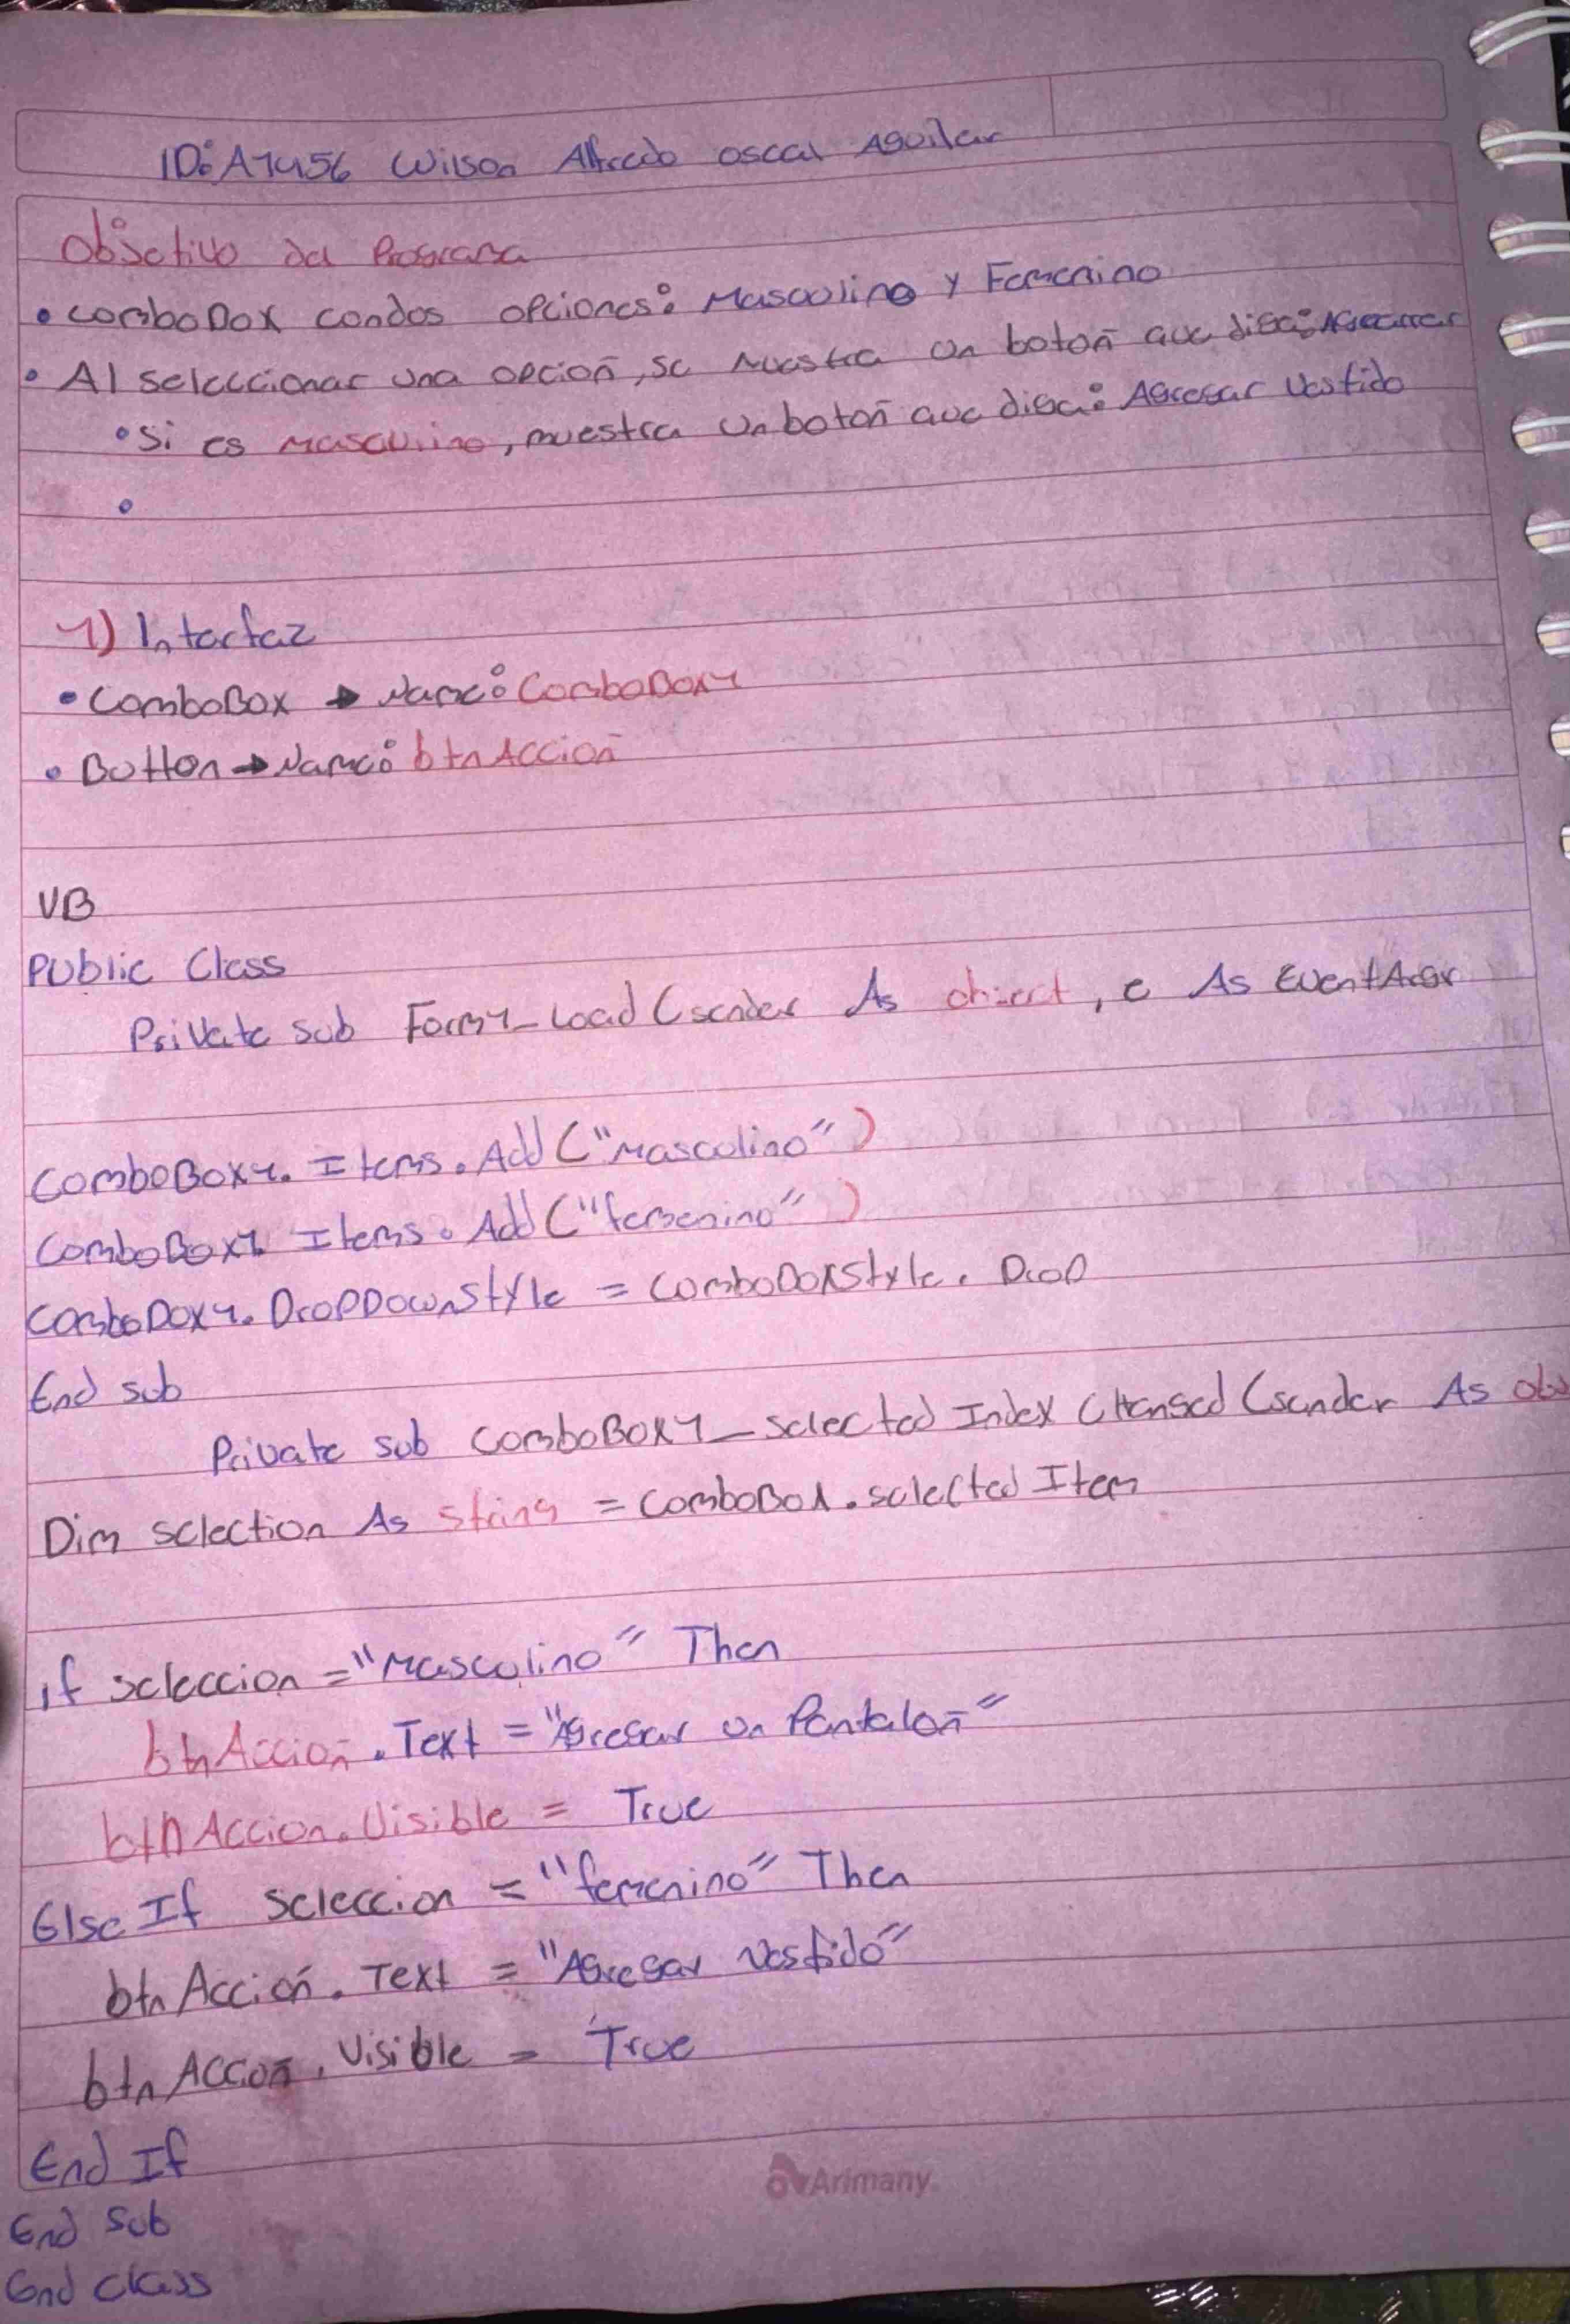 ID: A1456 Wilson Alfredo Oscal Aguilar
Objetivo del Programa
• comboBox condos opciones: Masculino y Femenino
• Al seleccionar una opción, se muestra un botón que diga:
• Si es Masculino, muestra un botón que diga: Agregar Vestido
•
1) Interfaz
• ComboBox → Name: ComboBox1
• Button → Name: btnAccion
VB
Public Class
Private sub Form1_Load (sender As object, e As EventArgs
ComboBox1. Items. Add ("Masculino")
ComboBox1. Items. Add ("femenino")
ComboBox1. DropDownStyle = ComboBoxStyle. Drop
End sub
Private sub ComboBox1_selected Index Changed (sender As obj
Dim selection As string = ComboBox1. selected Item
if seleccion = "Masculino" Then
btnAccion. Text = "Agregar un Pantalón"
btnAccion. Visible = True
Else If seleccion = "femenino" Then
btn Acción. Text = "Agregar Vestido"
btn Accon. Visible = True
End If
End Sub
End class
Arimany